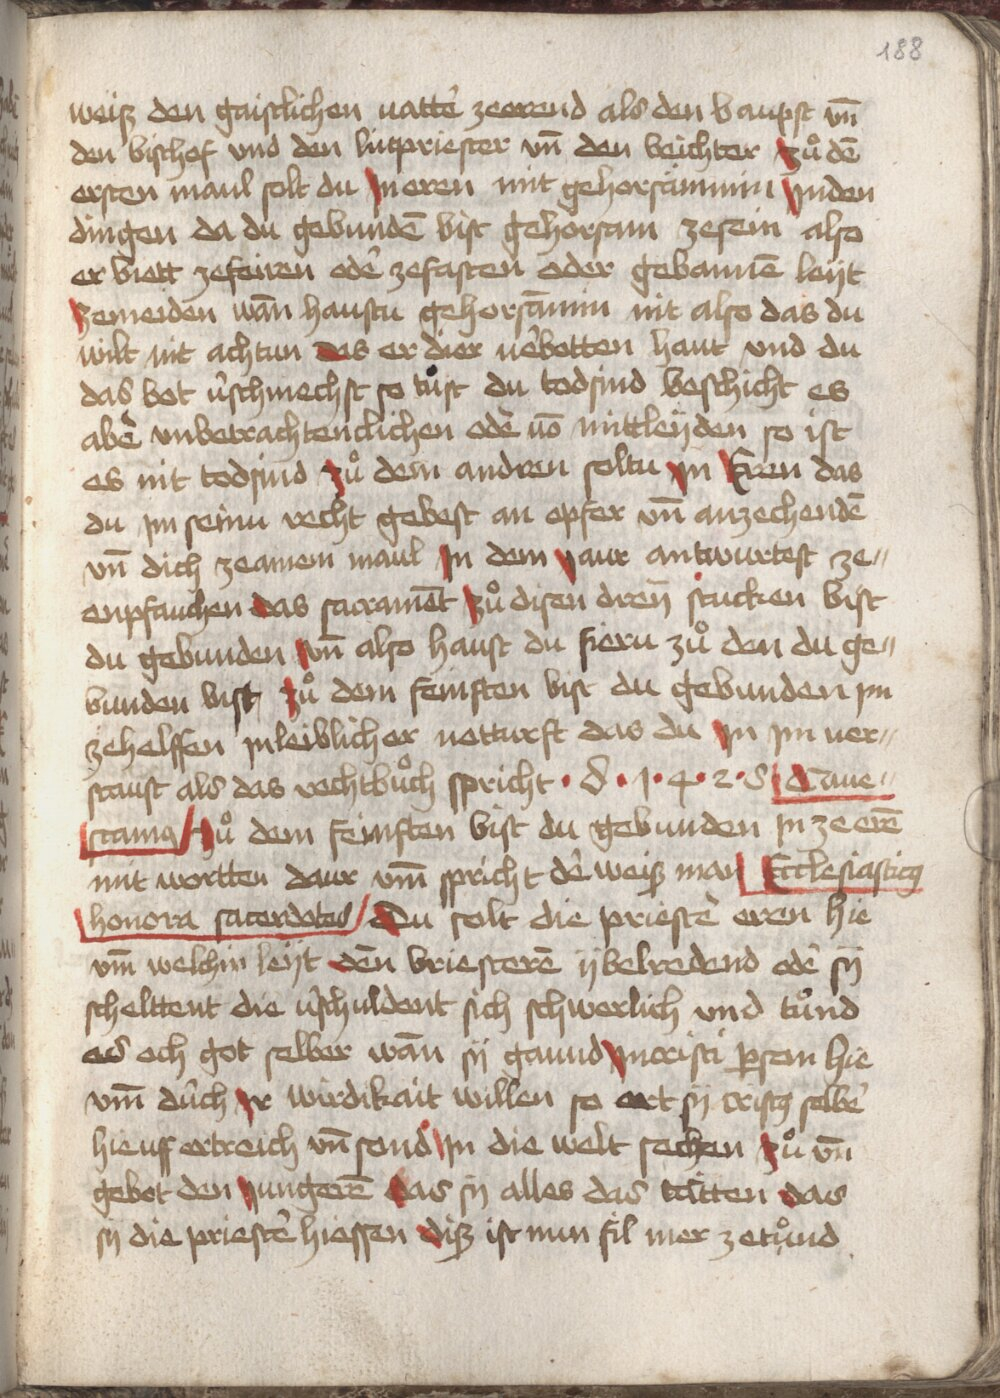 188
weiß den gaistlichen vatter̄ zeerend als den baupst vn̄
den bischof vnd den lutpriester vn̄ den beichter zů dē
ersten maul solt du in eren mit gehorsammin in den
dingen da du gebundē bist gehorsam zesein also
er biett zefeiren odē zefasten oder gebannē leÿt
zemeiden wān haustu gehorsāmin nit also das du
wilt nit achtun das er dier uēbotten haut vnd du
das bot v̄schmechst so tůst du todsind beschicht es
abē vnbetrachtenclichen odē vō mittleÿden so ist
es nit todsind zů dem andren soltu in Eren das
du im seinu recht gebest an opfer vn̄ an zechendē
vn̄ dich ze ainem maul in dem jaur antwurtest ze⸗
enpfauchen das sacramēt zů disen dreÿ stucken bist
du gebunden vn̄ also haust du fieru zů den du ge⸗
bunden bist zů dem feinften bist du gebunden im
zehelffen in leiblicher notturft das du in im uer⸗
staust als das rechtbůch spricht · d · 1 · 4 · 2 · S Caue⸗
stams zů dem feinften bist du gebunden in ze erē
mit wortten daur vm̄ spricht dē weiß man Ecclesiasticus
honora sacerdotes Du solt die priestē eren hie
vm̄ welchin leÿt dēn briesterē ÿbelredend odē sÿ
schelttent die v̄schuldent sich schwerlich vnd tůnd
es och got selber wān sÿ gaund in cristi psem hie
vm̄ dūch ir wirdikait willen so ert sÿ cristus selbē
hie uff ertreich vn̄ send in die welt sechen zů vn̄
gebot den jungerē das sÿ alles das tätten das
sÿ die priestē hiessen diß ist nun fil mer ze tůnd